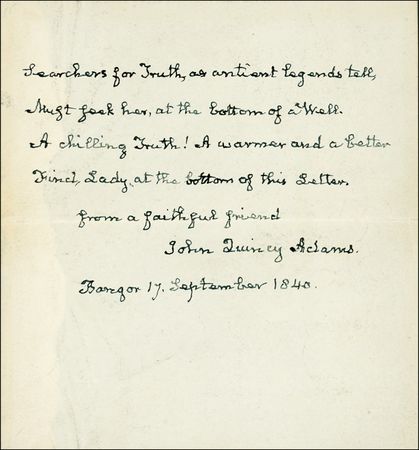 Searchers for Truth, as antient legends tell,
Must seek her, at the bottom of a Well.
A chilling Truth! A warmer and a better
Find, Lady, at the bottom of this Letter.
from a faithful friend
John Quincy Adams.
Bangor 17. September 1840.